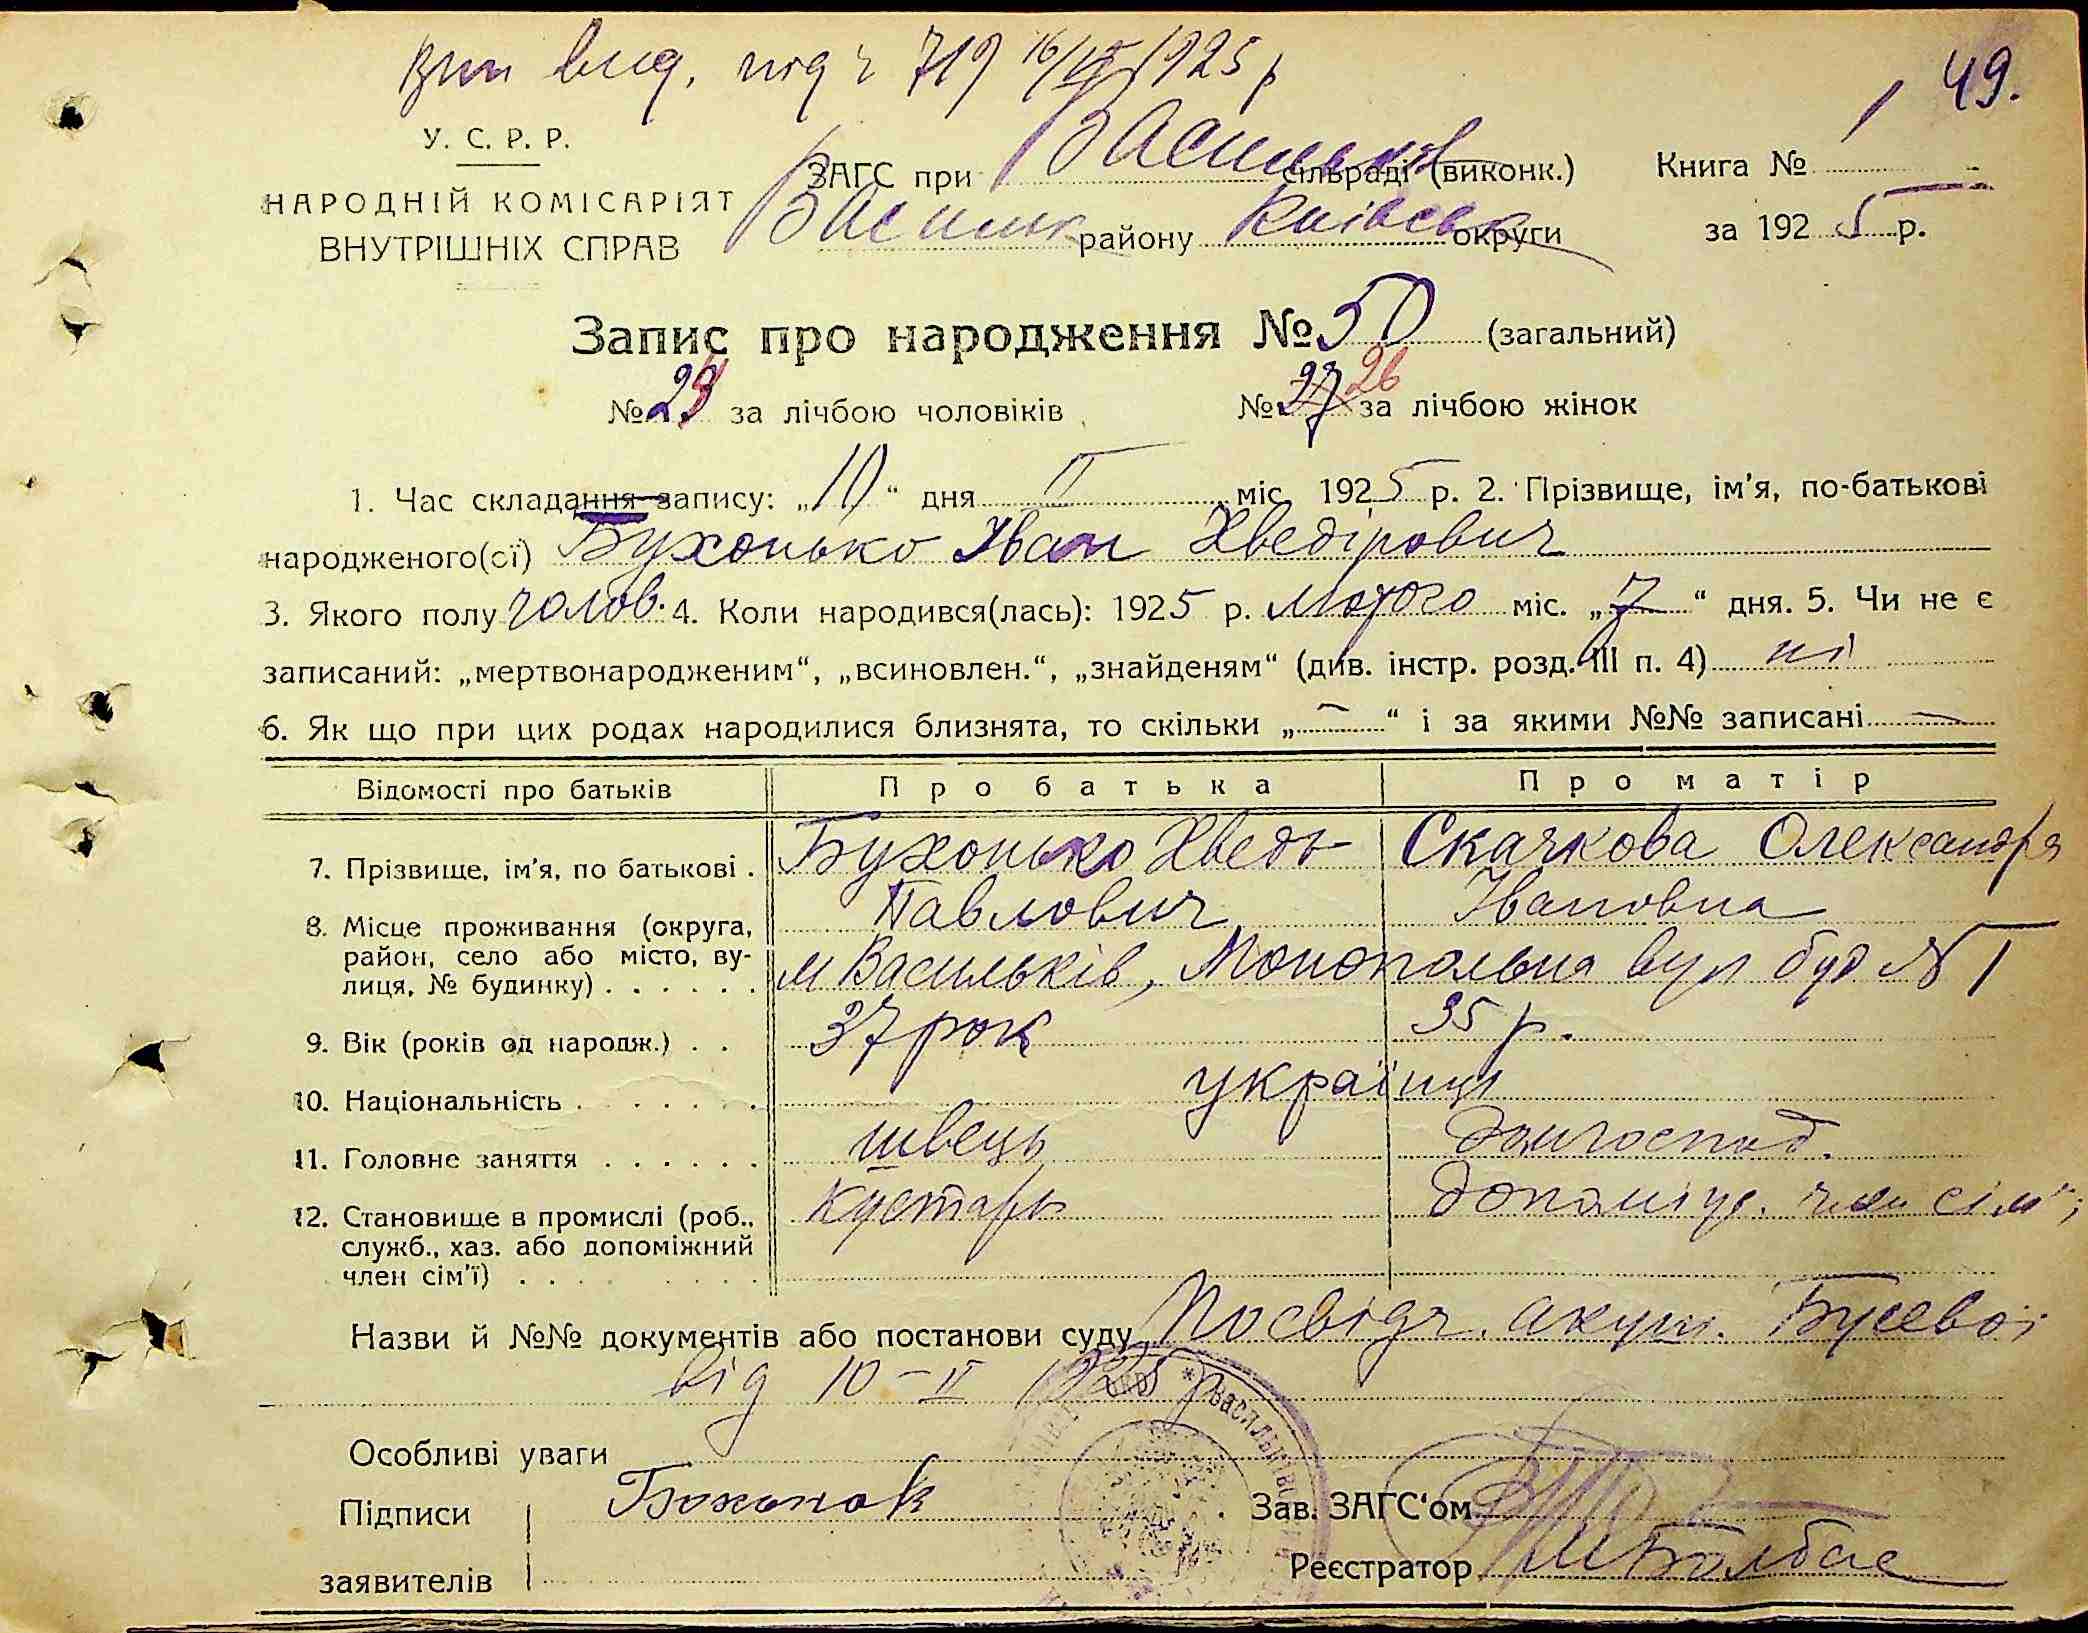 вид. під ч 719 16/IX 1925 р
49.
У. С. Р. Р.
НАРОДНІЙ КОМІСАРІЯТ
ВНУТРІШНІХ СПРАВ
ЗАГС при Васильків сільраді (виконк.) Книга № 1
Васильк району Київськ округи за 1925 р.
Запис про народження № 50 (загальний)
№ 24 за лічбою чоловіків № 27 26 за лічбою жінок
1. Час складання запису: „10“ дня II міс. 1925 р. 2. Прізвище, ім'я, по-батькові
народженого(ої) Бухонько Іван Хведірович
3. Якого полу чолов. 4. Коли народився(лась): 1925 р. Лютого міс. „7“ дня. 5. Чи не є
записаний: „мертвонародженим“, „всиновлен.“, „знайденям“ (див. інстр. розд. III п. 4) ні
6. Як що при цих родах народилися близнята, то скільки „—“ і за якими №№ записані —
Відомості про батьків Про батька Про матір
7. Прізвище, ім'я, по батькові . Бухонько Хведь Скачкова Олександра
Павлович Івановна
8. Місце проживання (округа,
район, село або місто, ву-
лиця, № будинку) . . . . . . м Васильків, Монопольна вул буд № 1
9. Вік (років од народж.) . . 37 рок 35 р.
10. Національність . . . . . . українці
11. Головне заняття . . . . . . швець домгоспод.
12. Становище в промислі (роб.,
служб., хаз. або допоміжний
член сім'ї) . . . . . . . кустарь допоміж. член сім'ї
Назви й №№ документів або постанови суду Посвідч. акуш. Бусевої
від 10–II 1925 р
Особливі уваги
Підписи Бохонок Зав. ЗАГС'ом
заявителів Реєстратор М Болбас